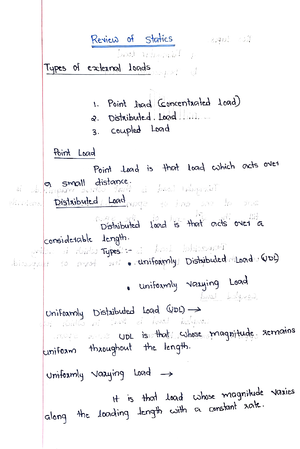 Review of Statics
Types of external loads
1. Point load (concentrated load)
2. Distributed Load ......
3. Coupled Load
Point Load
Point Load is that load which acts over
a small distance.
Distributed Load
Distributed load is that acts over a
considerable length.
Types :-
• uniformly Distributed Load (UDL)
• uniformly Varying Load
Uniformly Distributed Load (UDL) →
UDL is that whose magnitude remains
uniform throughout the length.
Uniformly Varying Load →
It is that load whose magnitude varies
along the loading length with a constant rate.